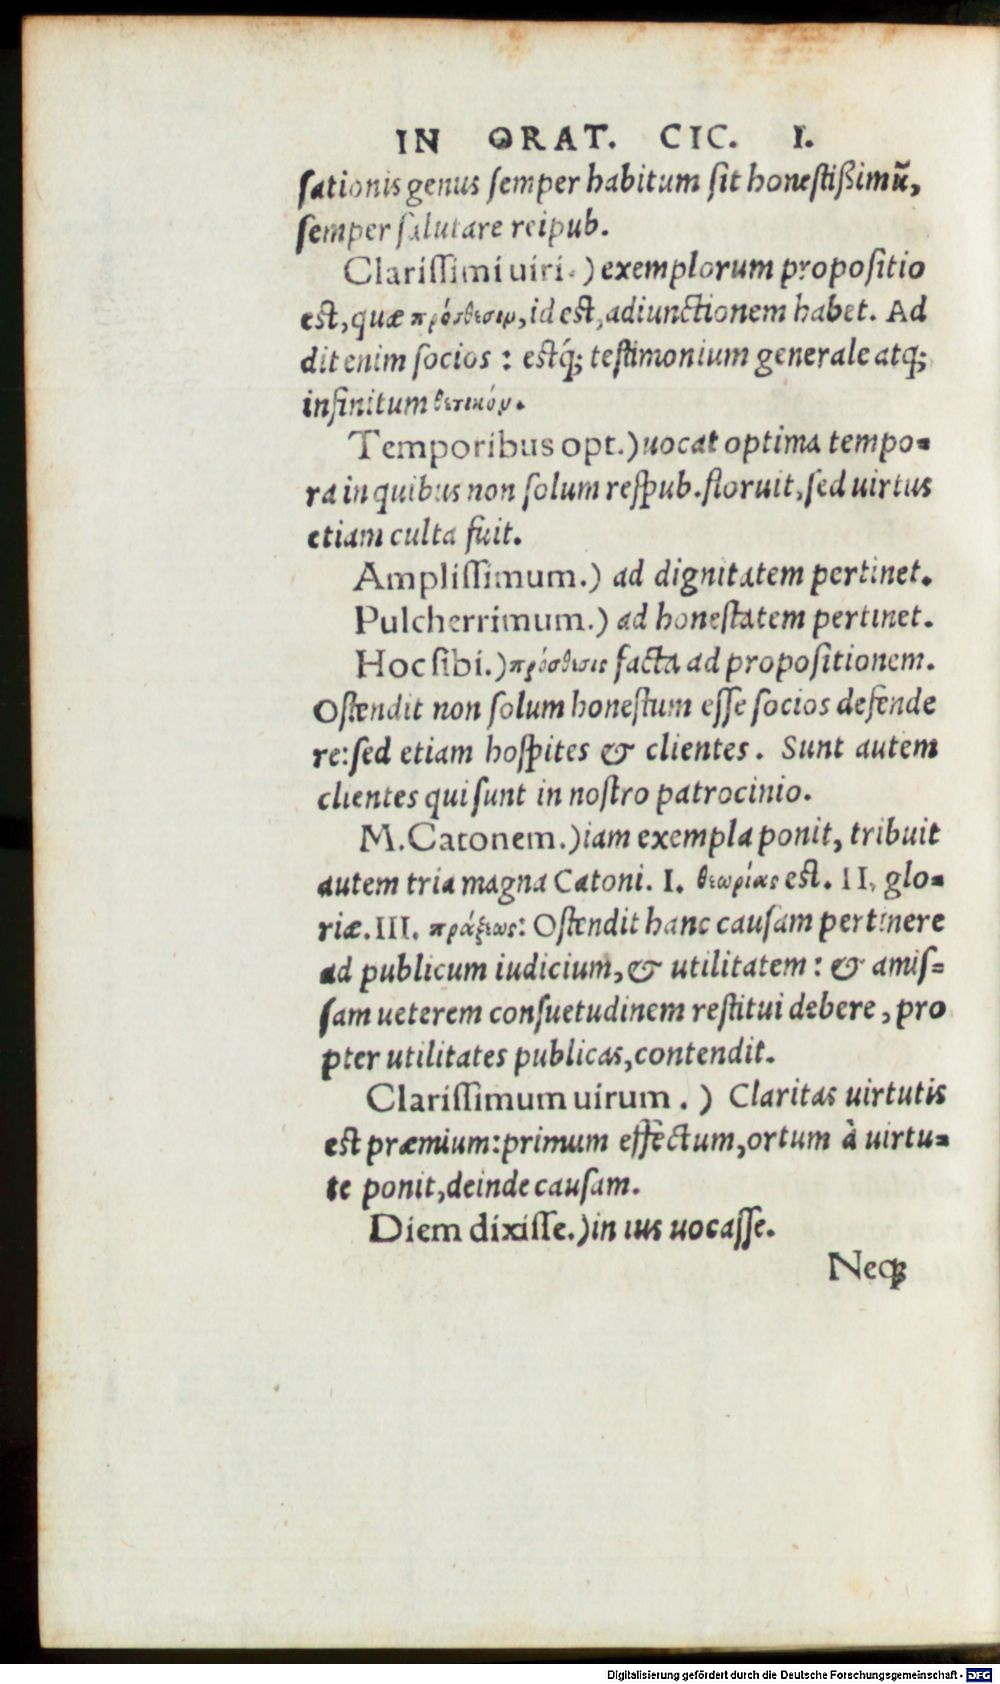 IN ORAT. CIC. I.
sationis genus semper habitum sit honestißimũ,
semper salutare reipub.
Clarissimi uiri.) exemplorum propositio
est, quæ πρόσθεσιμ, id est, adiunctionem habet. Ad
dit enim socios : estq́; testimonium generale atq;
infinitum θετικόμ.
Temporibus opt.) uocat optima tempo-
ra in quibus non solum respub. floruit, sed uirtus
etiam culta fuit.
Amplissimum.) ad dignitatem pertinet.
Pulcherrimum.) ad honestatem pertinet.
Hoc sibi.) πρόσθεσις facta ad propositionem.
Ostendit non solum honestum esse socios defende
re: sed etiam hospites & clientes. Sunt autem
clientes qui sunt in nostro patrocinio.
M. Catonem.) iam exempla ponit, tribuit
autem tria magna Catoni. I. θεωρίας est. II. glo-
riæ. III. πράξεως: Ostendit hanc causam pertinere
ad publicum iudicium, & utilitatem : & amis-
sam ueterem consuetudinem restitui debere, pro
pter utilitates publicas, contendit.
Clarissimum uirum.) Claritas uirtutis
est præmium: primum effectum, ortum à uirtu-
te ponit, deinde causam.
Diem dixisse.) in ius uocasse.
Neq;
Digitalisierung gefördert durch die Deutsche Forschungsgemeinschaft - DFG